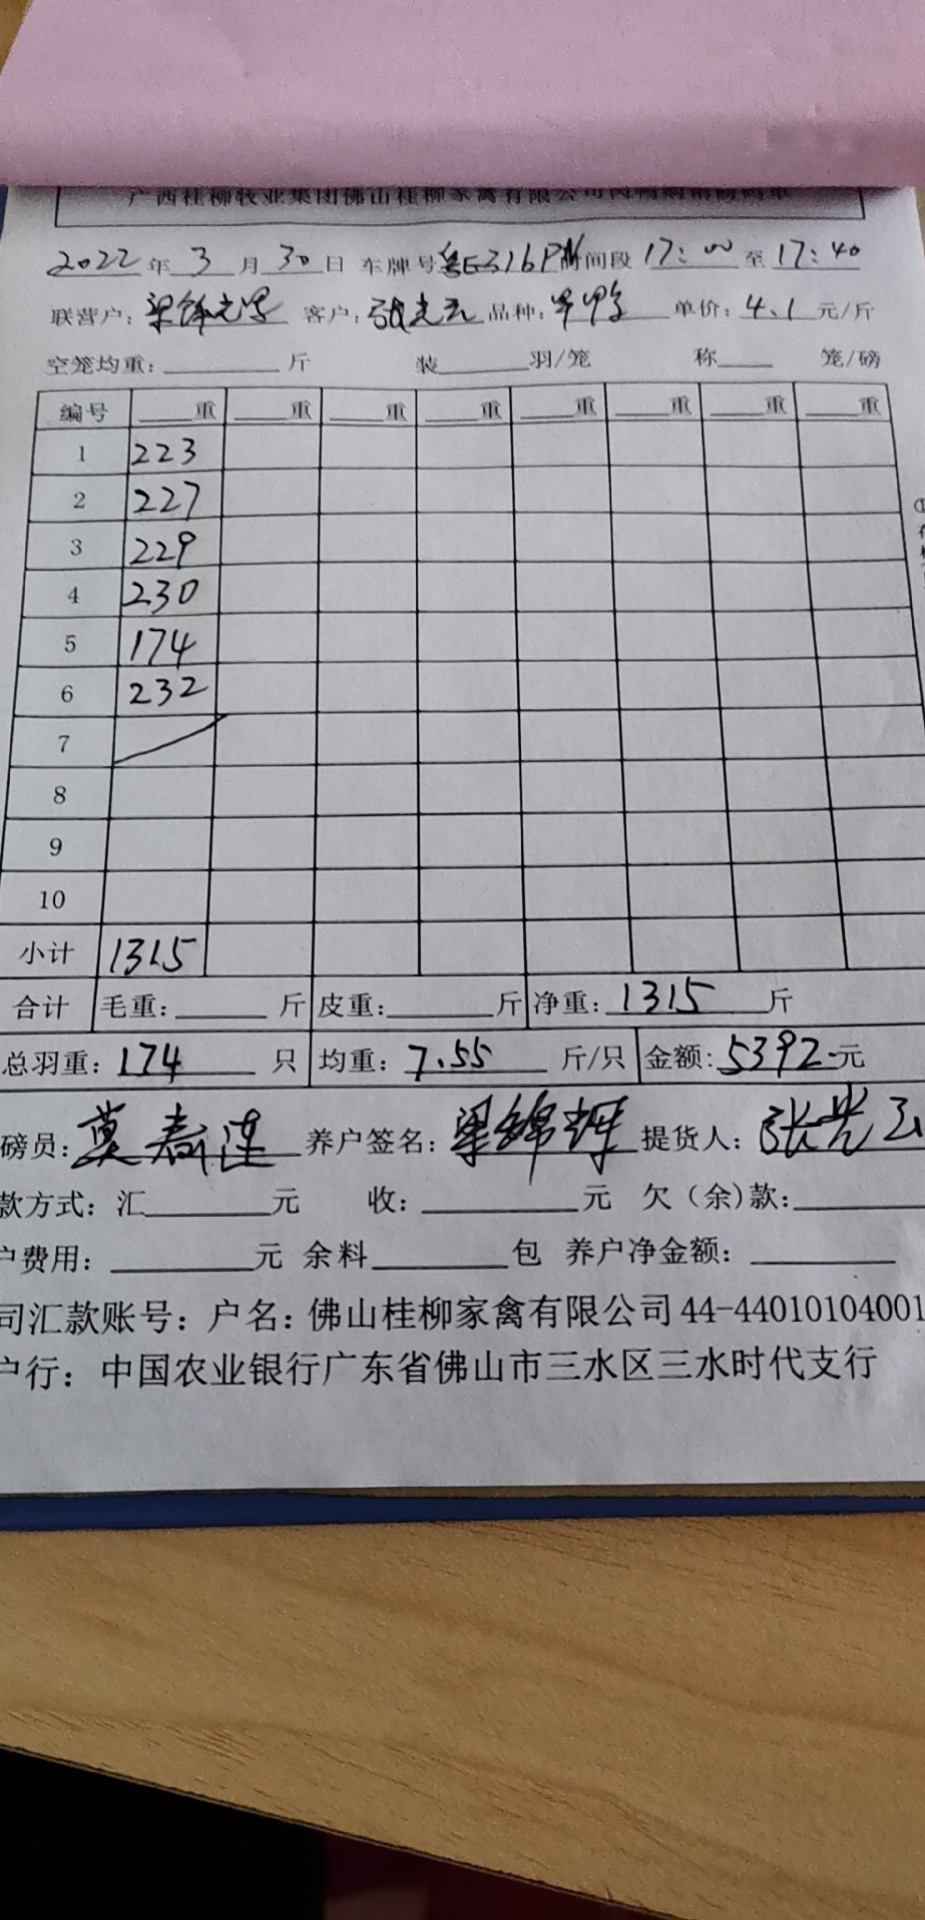 广西桂柳牧业集团佛山桂柳家禽有限公司肉鸭购销磅码单
2022年3月30日 车牌号粤E316P 时间段17:00至17:40
联营户: 客户:张光云 品种: 单价:4.1元/斤
空笼均重: 斤 装 羽/笼 称 笼/磅
编号 重 重 重 重 重 重 重 重
1 223
2 227
3 229
4 230
5 174
6 232
7
8
9
10
小计 1315
合计 毛重: 斤 皮重: 斤 净重:1315斤
总羽重:174只 均重:7.55斤/只 金额:5392元
磅员:莫春莲 养户签名:梁锦辉 提货人:张光云
款方式:汇 元 收: 元 欠(余)款:
户费用: 元 余料 包 养户净金额:
司汇款账号:户名:佛山桂柳家禽有限公司 44-44010104001
户行:中国农业银行广东省佛山市三水区三水时代支行
①